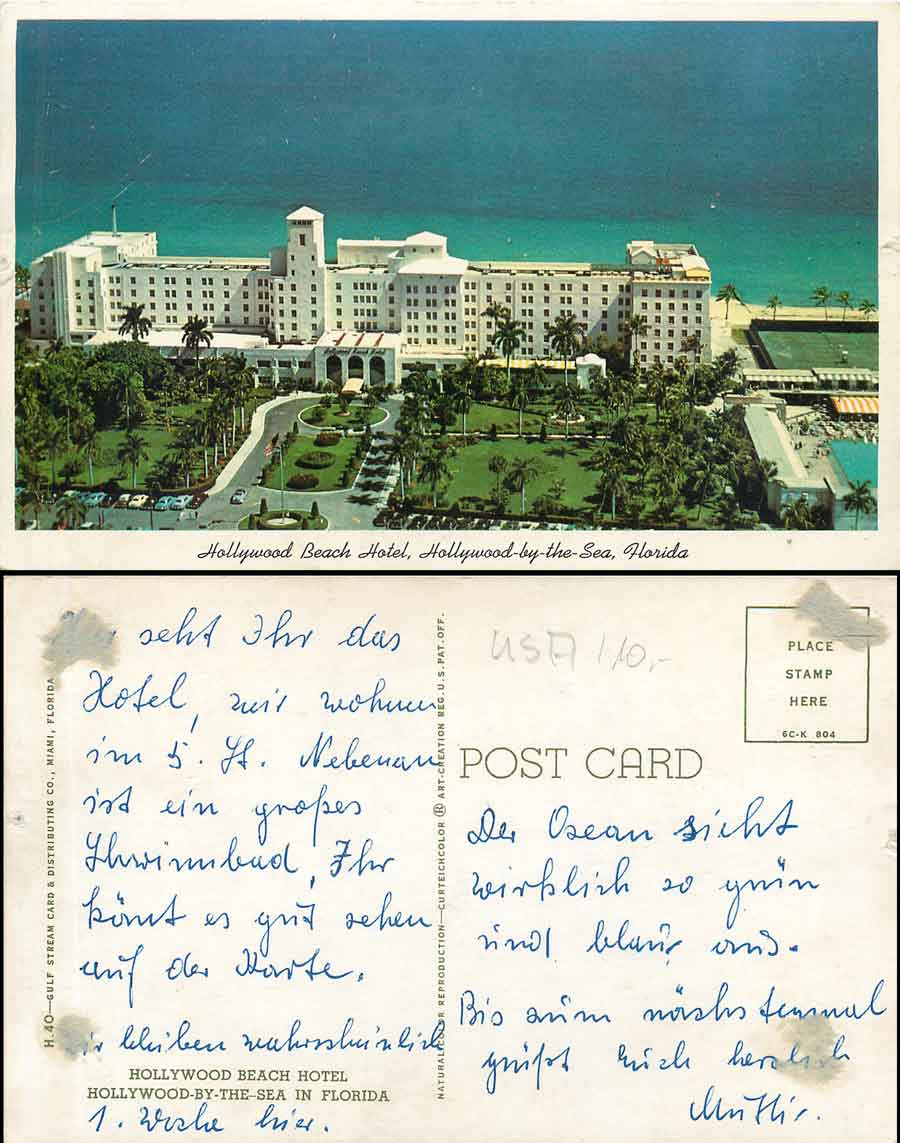 Hollywood Beach Hotel, Hollywood-by-the-Sea, Florida
seht Ihr das
Hotel, wir wohnen
im 5. St. Nebenan
ist ein großes
Schwimmbad, Ihr
könnt es gut sehen
auf der Karte.
Wir bleiben wahrscheinlich
1. Woche hier.
HOLLYWOOD BEACH HOTEL
HOLLYWOOD-BY-THE-SEA IN FLORIDA
H.40—GULF STREAM CARD & DISTRIBUTING CO., MIAMI, FLORIDA
NATURALCOLOR REPRODUCTION—CURTEICHCOLOR ® ART-CREATION REG. U.S. PAT. OFF.
USA 110,-
PLACE
STAMP
HERE
6C-K 804
POST CARD
Der Ozean sieht
wirklich so grün
und blau aus.
Bis zum nächstenmal
grüßt Euch herzlich
Mutti.